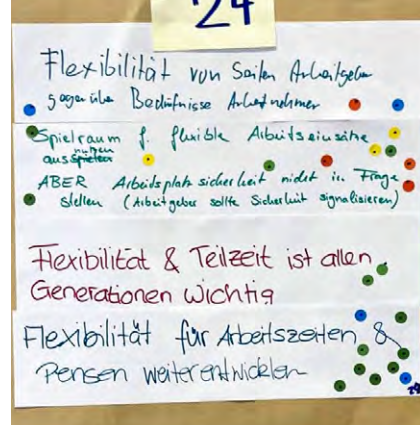 24
Flexibilität von Seiten Arbeitgeber
gegenüber Bedürfnisse Arbeitnehmer
Spielraum f. flexible Arbeitseinsätze
ausspielen nutzen
ABER Arbeitsplatzsicherheit nicht in Frage
stellen (Arbeitgeber sollte Sicherheit signalisieren)
Flexibilität & Teilzeit ist allen
Generationen wichtig
Flexibilität für Arbeitszeiten &
Pensen weiterentwickeln
24